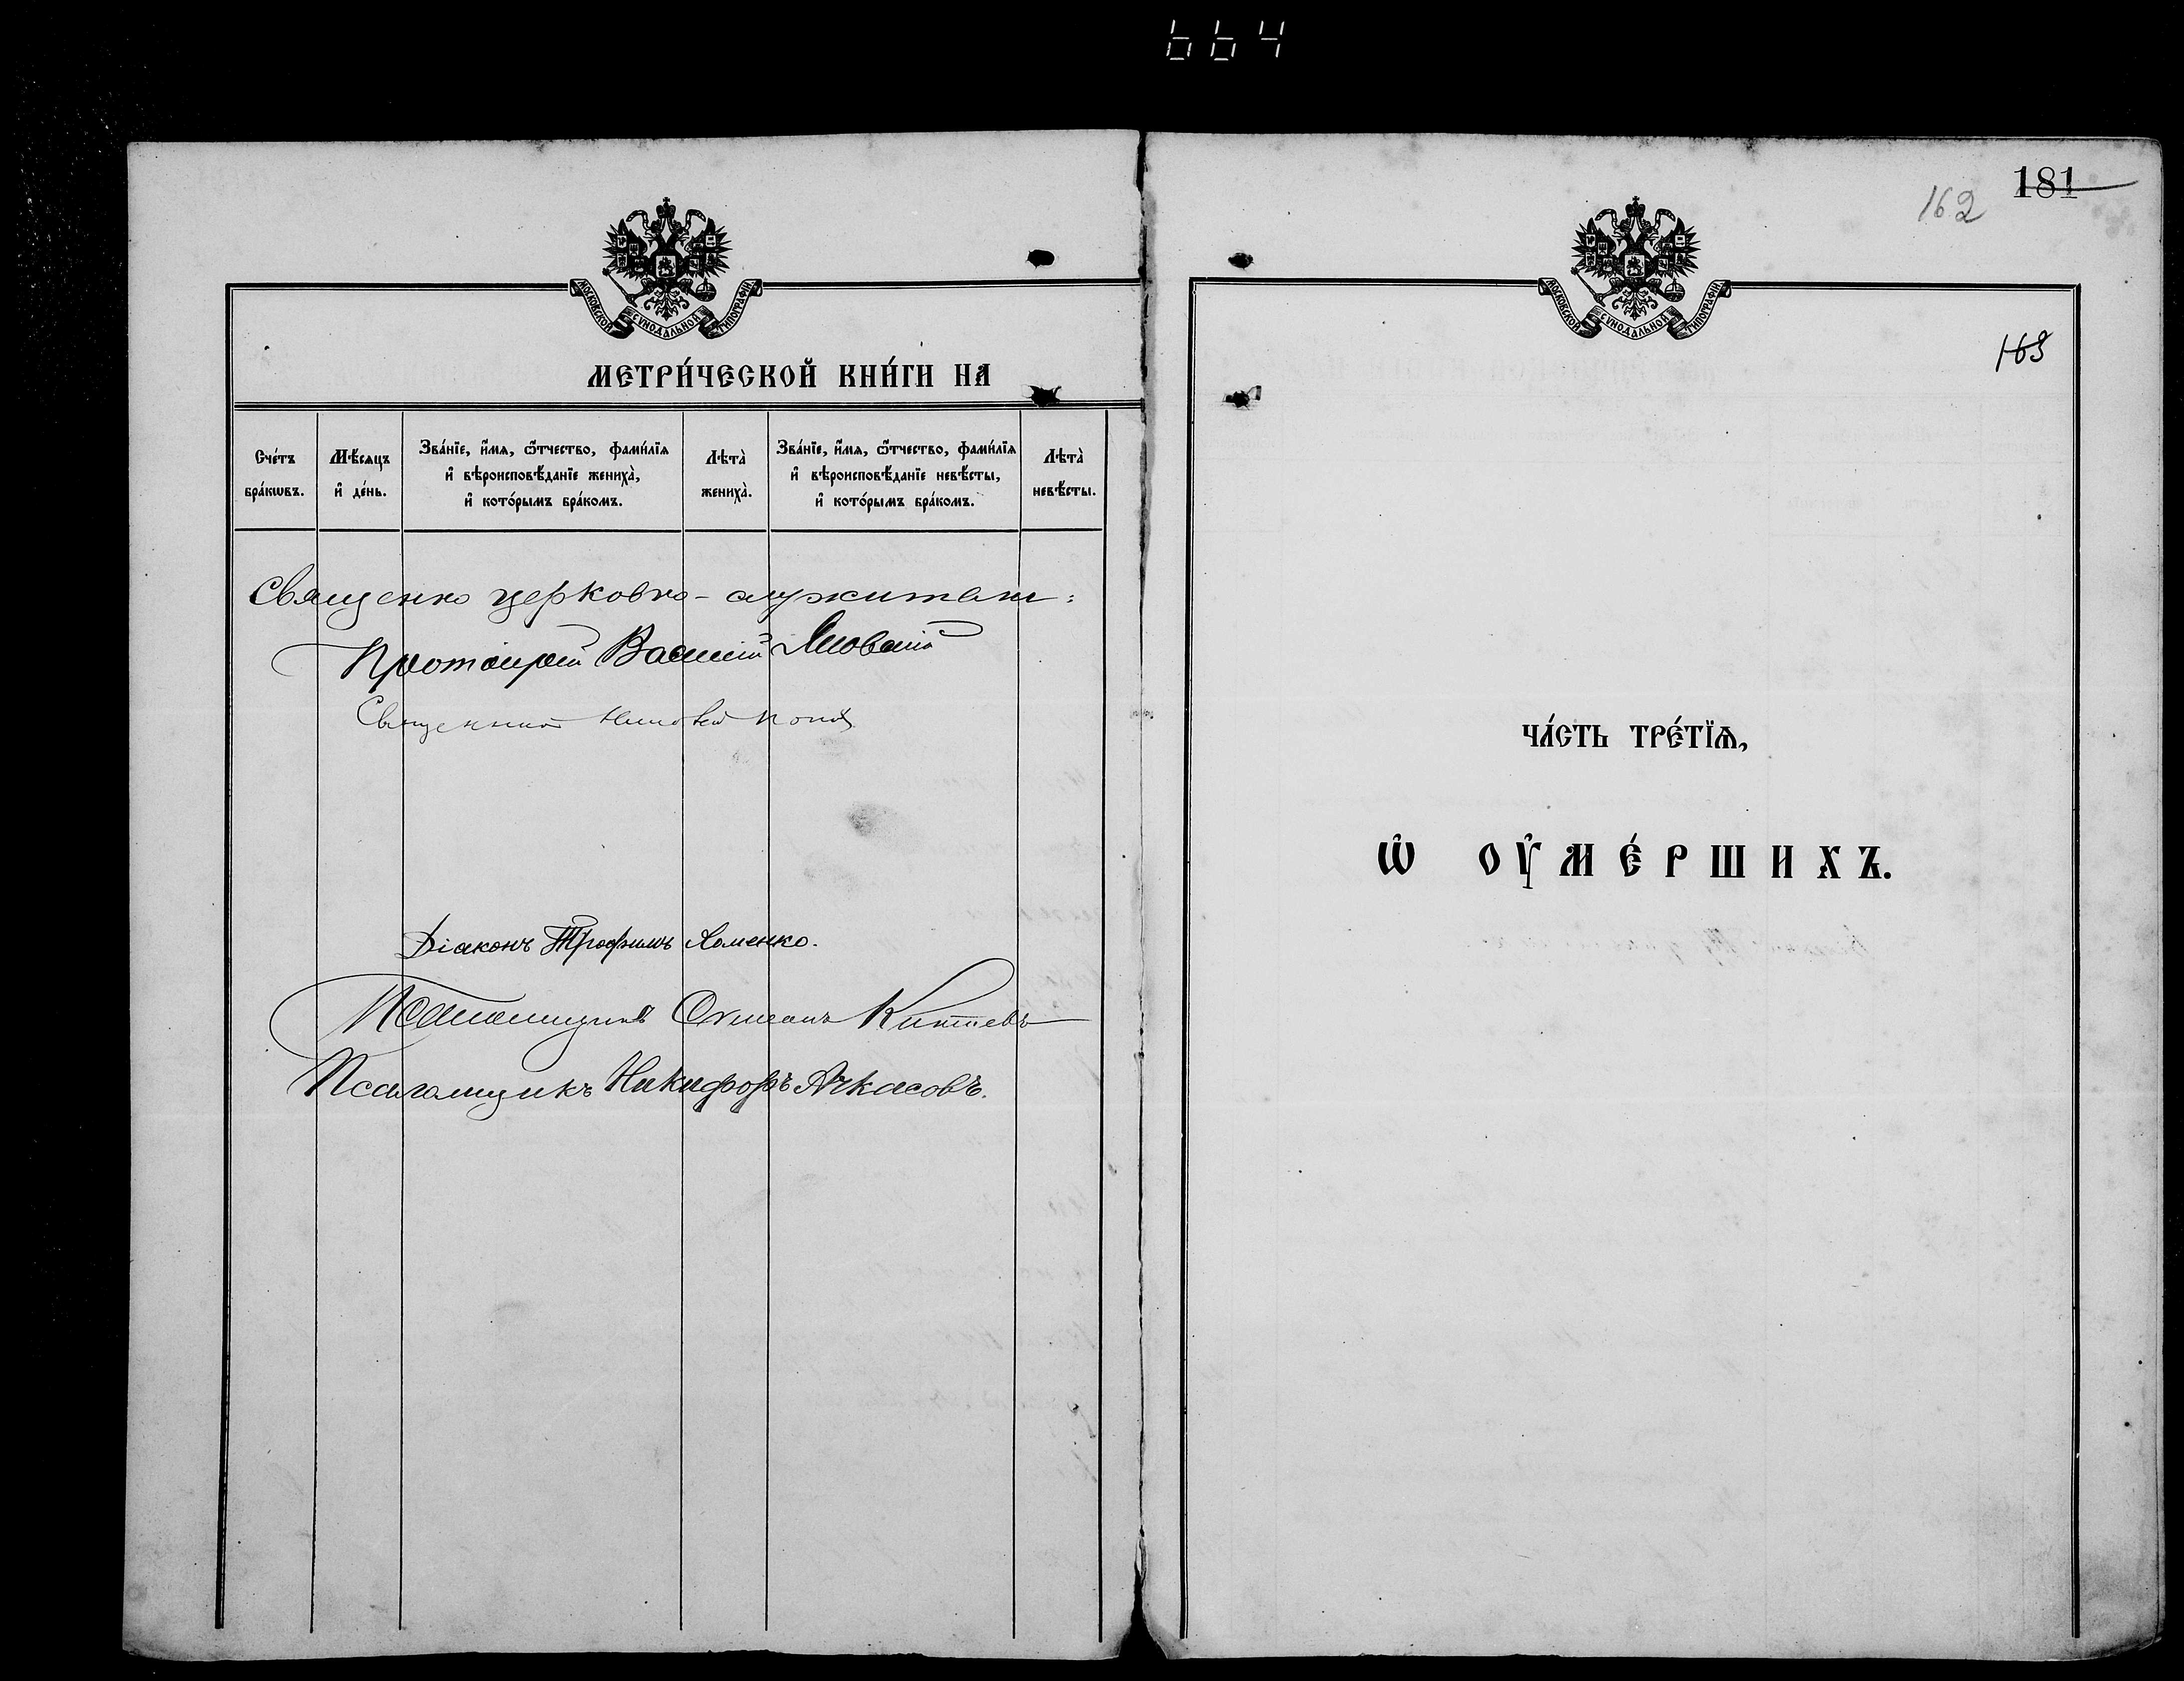 664
181
162
163
МОСКОВСКОЙ СУНОДАЛЬНОЙ ТИПОГРАФІИ
МЕТРИ́ЧЕСКОЙ КНИ́ГИ НА
Сче́тъ бра́кѡвъ.
Мѣ́сяцъ и҆ де́нь.
Зва́нїе, и҆́мѧ, ѻ҆́тчество, фами́лїѧ и҆ вѣроисповѣ́данїе жениха̀, и҆ кото́рымъ бра́комъ.
Лѣта̀ жениха̀.
Зва́нїе, и҆́мѧ, ѻ҆́тчество, фами́лїѧ и҆ вѣроисповѣ́данїе невѣ́сты, и҆ кото́рымъ бра́комъ.
Лѣта̀ невѣ́сты.
Священно церковно-служители:
Протоіерей Василій
Священникъ
Діаконъ Трофимъ Хоменко.
Псаломщикъ
Псаломщикъ Никифоръ Ачкасовъ.
МОСКОВСКОЙ СУНОДАЛЬНОЙ ТИПОГРАФІИ
ЧА́СТЬ ТРЕ́ТЇѦ,
Ѡ҆ ОУ҆МЕ́РШИХЪ.